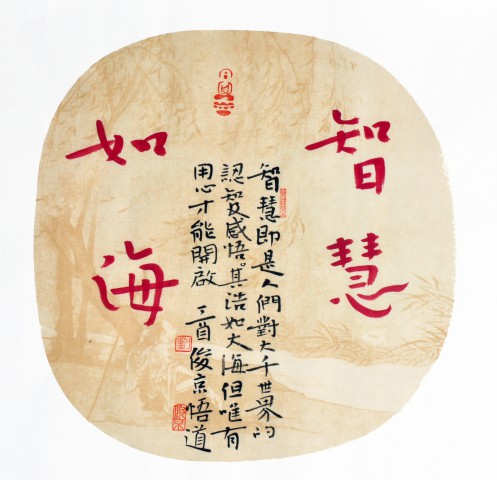 智慧
智慧即是人們對大千世界的
認知及感悟。其浩如大海但唯有
用心才能開啟 丁酉俊京悟道
如海